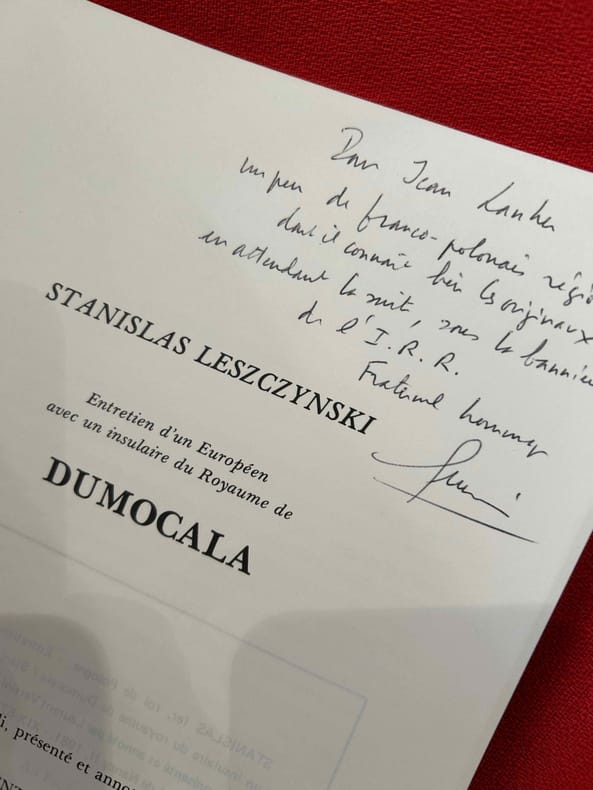 Pour Jean Lanher
un peu de franco-polonais régio
dont il connaît bien les originaux
en attendant la suite, sous la banniè
de l'I.R.R.
Fraternel hommage
STANISLAS LESZCZYNSKI
Entretien d'un Européen
avec un insulaire du Royaume de
DUMOCALA
i, présenté et anno